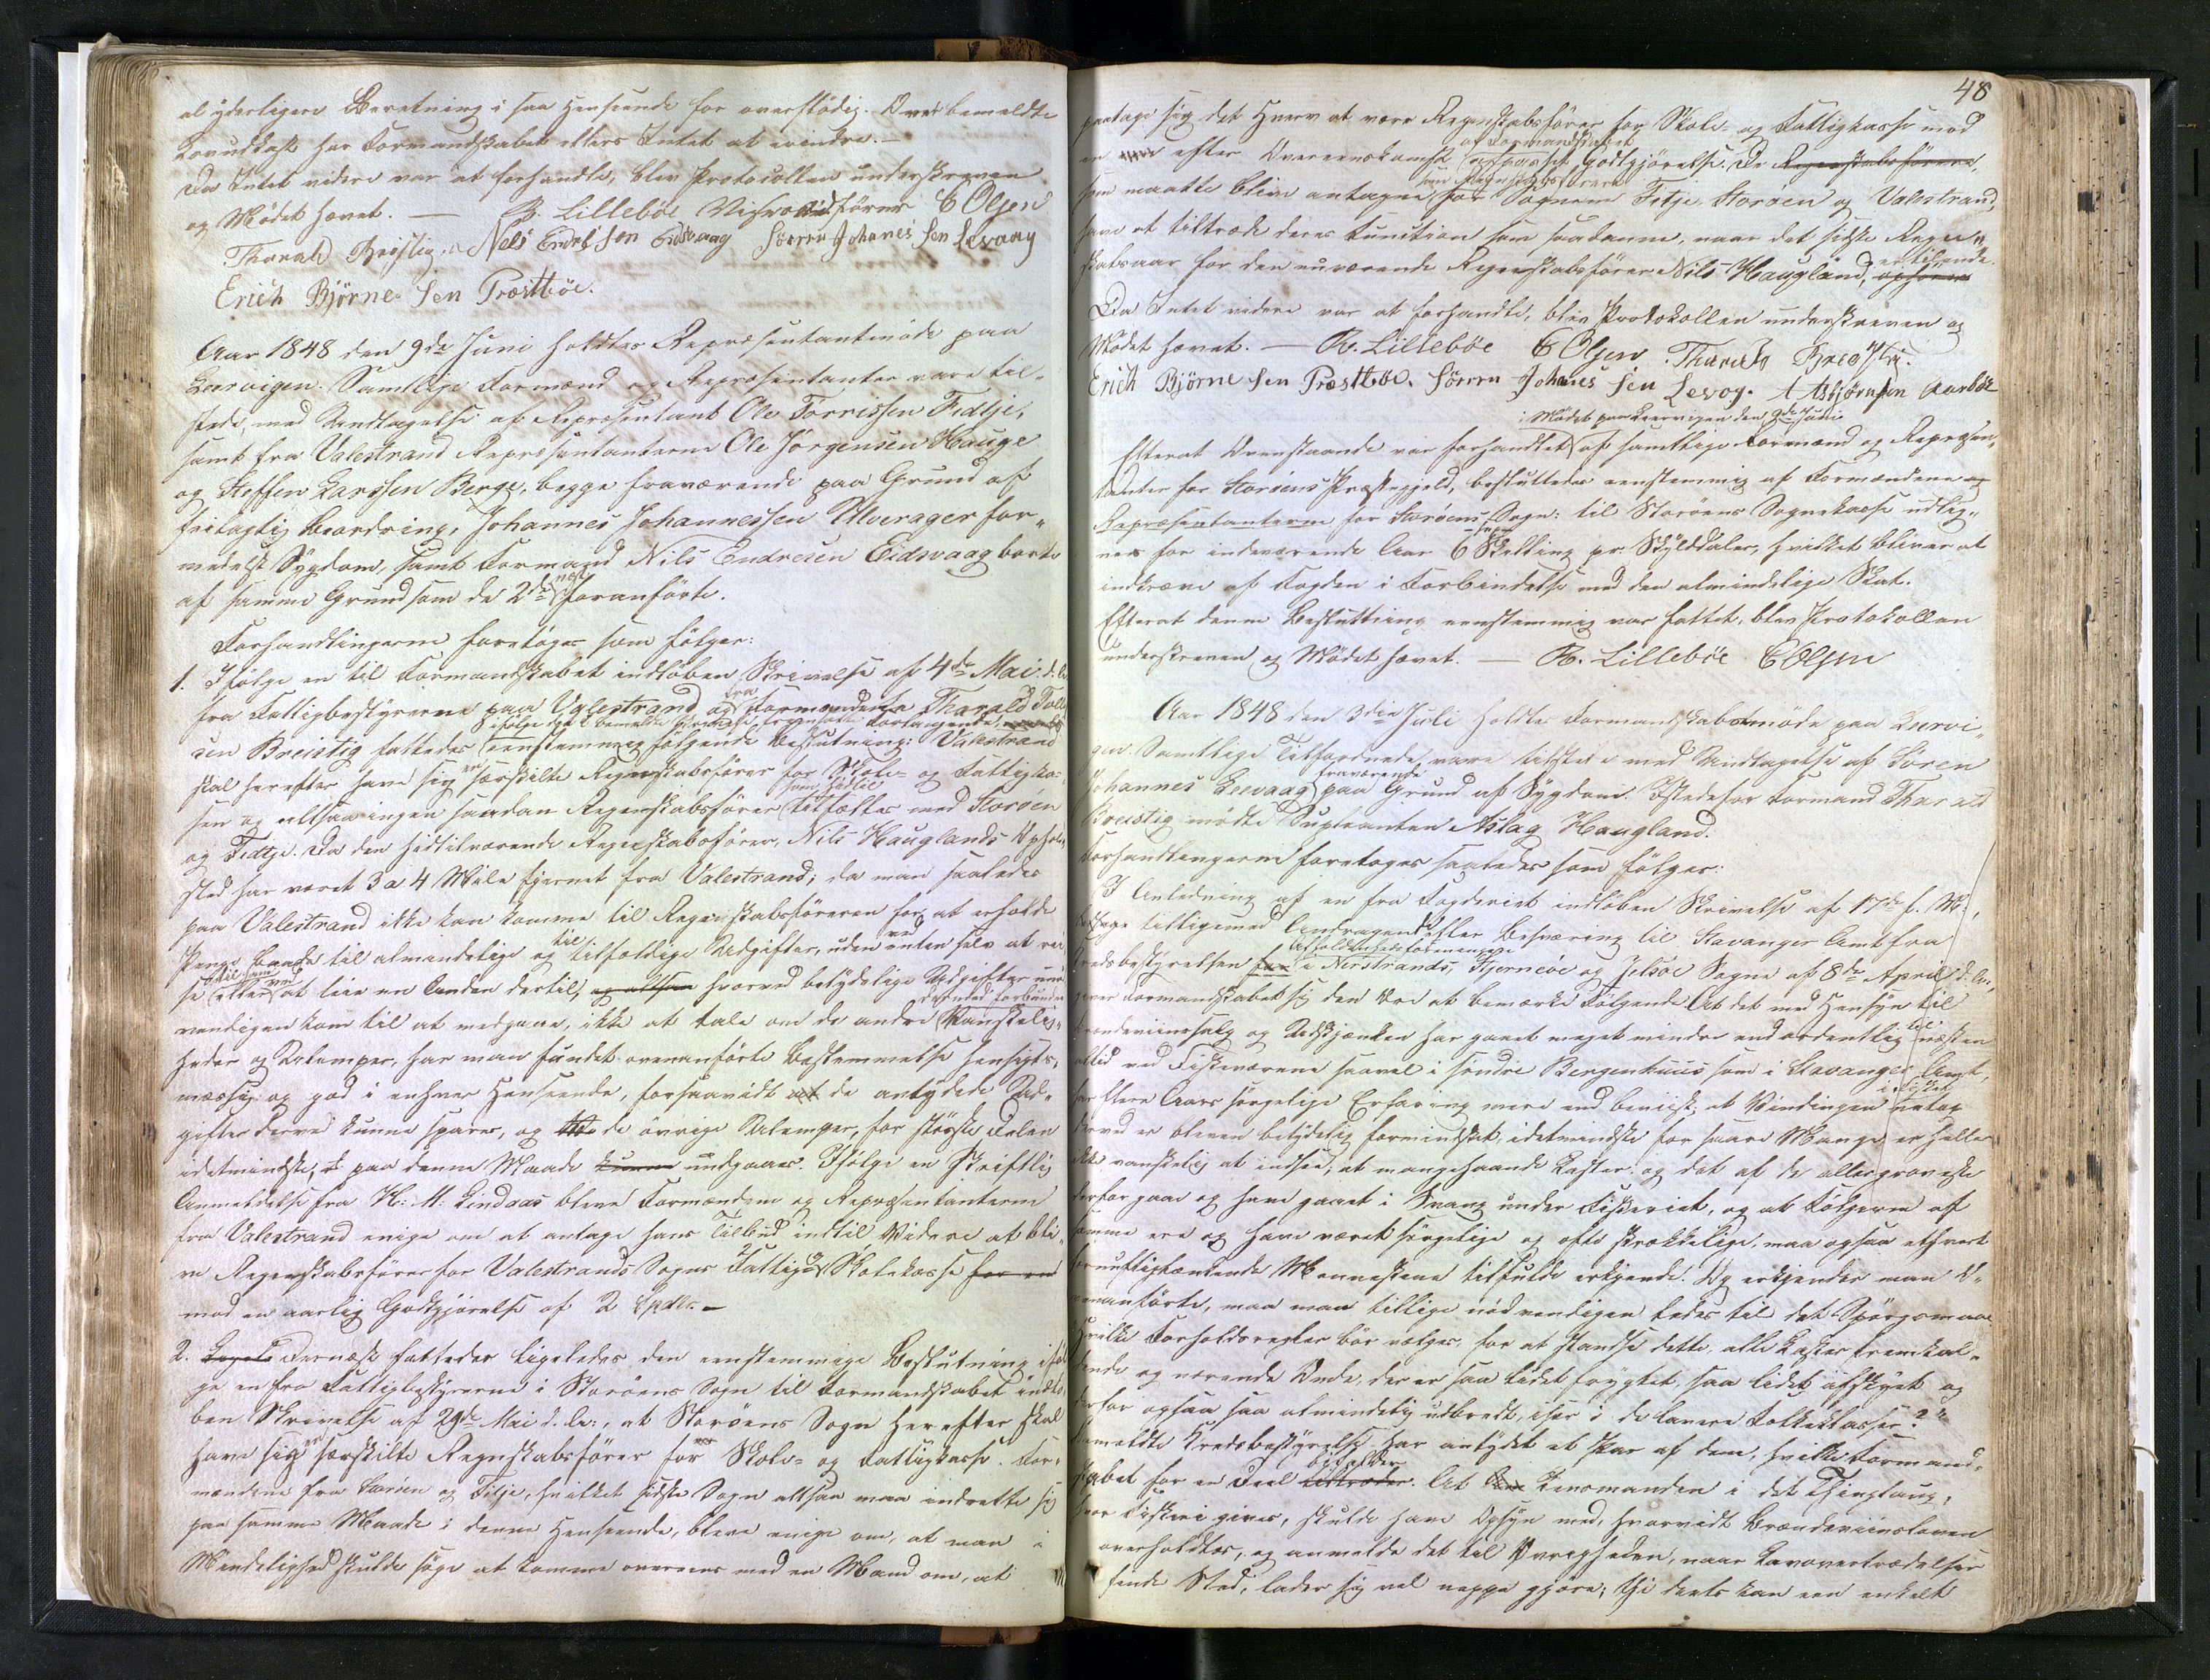 al yderligere Beretning i saa Henseende for overflödig. Over bemeldte
Lovudkast har Formandskabet ellers Intet at erindre. –
Da Intet videre var at forhandle, blev Protocollen underskreven
og Mödet hævet. — R. Lillebøe Viceordförer E Olsen
Tharald Breistig Nels Endre Sen Eidsvaag Sörren Johanes Sen Levaag
Erich Bjørne Sen Præsttböe.
Aar 1848 den 9de Juni holdtes Repræsentantmöde paa
Leervigen. Samtlige Formænd og Repræsentanter vare til-
stede, med Undtagelse af Repræsentant Ole Torrissen Fedtje,
samt fra Valestrand Repræsentanterne Ole Jörgensen Hauge
og Steffen Larssen Berge, begge fraværende paa Grund af
feilagtig Beordring, Johannes Johannessen Ulverager for-
medelst Sygdom, samt Formand Nils Endresen Eidsvaag borte
af samme Grund som de 2de næst foranförte.
Forhandlingerne foretoges som fölger:
1. Ifölge en til Formandskabet indlöben Skrivelse af 4de Mai d. A.
fra Fattigbestyrerne paa Valestrand og fra Formanden Tharald Tolle
sen Breistig fattedes ifölge det i bemeldte Skrivelse fremsatte Forlangende, eenstemmig fölgende Beslutning: Valestrand
skal herefter have sig en særskilte Regnskabsförer for Skole- og Fattigka-
sen og altsaa ingen saadan Regnskabsförer som hidtil tilfælles med Storöen
og Fedtje. Da den hidtilværende Regnskabsförer, Nils Hauglands Ophol-
sted har været 3 a 4 Mile fjernet fra Valestrand; da man saaledes
paa Valestrand ikke kan komme til Regnskabsföreren for at erholde
Penge baade til almindelige og til tilfældige Udgifter, uden ved enten selv at rei
se dertil som eller ved at leie en Anden dertil, og altsaa hvorved betydelige Udgifter nöd-
vendigen kom til at medgaae, ikke at tale om de andre dermed forbundne Vanskelig-
heder og Ulemper, har man fundet ovenanförte Bestemmelse hensigts-
mæssig og god i enhver Henseende, forsaavidt de antydede Ud-
gifter derved kunne spares, og de övrige Ulemper, for störste Delen
idetmindste, paa denne Maade kunne undgaaes. Ifölge en skriftlig
Anmeldelse fra H: M: Lindaas bleve Formændene og Repræsentanterne
fra Valestrand enige om at antage hans Tilbud indtil Videre at bli-
ve Regnskabsförer for Valestrands Sogns Fattig- og Skolekasse for en
mod en aarlig Godtgjörelse af 2 Spdlr. –
2. Dernæst fattedes ligeledes den eenstemmige Beslutning iföl
ge en fra Fattigbestyrerne i Storöens Sogn til Formandskabet indlö-
ben Skrivelse af 29de Mai d. A:, at Storöens Sogn herefter skal
have sig en særskilte Regnskabsförer for Skole- og Fattigkasse. For-
mændene fra Storöen og Fitje, hvilket sidste Sogn altsaa maa indrette sig
paa samme Maade i denne Henseende, bleve enige om, at man i
Mindelighed skulde söge at komme overeens med en Mand om, at
48
paatage sig det Hverv at være Regnskabsförer for Skole- og Fattigkasse mod
en efter Overeenskomst af Formandskabet afpasset Godtgjörelse. De Regnskabsförere,
som maatte blive antagne som Regnskabsförere for Sognene Fitje, Storöen og Valestrand,
have at tiltræde deres Function som saadanne, naar det sidste Regn-
skabsaar for den nuværende Regnskabsförer Nils Haugland, er tilende. ophörer
Da Intet videre var at forhandle, blev Protokollen underskreven og
Mödet hævet. — R. Lillebøe E Olsen Tharald Breistig.
Erich Bjørne Sen Præsttböe. Sörren Johanes Sen Levog. A Asbjørnsen Aarbøe
Efterat Ovenstaaende var forhandlet i Mödet paa Leervigen den 9de Juni af samtlige Formænd og Repræsen-
tanter for Storöens Præstegjeld, besluttedes eenstemmig af Formændene og
Repræsentanterne for Storöens Sogn: til Storöens Sognekasse udlig-
nes for indeværende Aar 6 sex Skilling pr. Skylddaler, hvilket bliver at
indkræve af Fogden i Forbindelse med den almindelige Skat.
Efterat denne Beslutning eenstemmig var fattet, blev Protokollen
underskreven og Mödet hævet. — R. Lillebøe E Olsen
Aar 1848 den 3die Juli holdtes Formandskabsmöde paa Leervi-
gen. Samtlige Tilforordnede vare tilstede med Undtagelse af Sören
Johannes Leevaag fraværende paa Grund af Sygdom. Istedetfor Formand Tharald
Breistig mödte Supleanten Aslag Haugland.
Forhandlingerne foretoges saaledes som fölger:
I Anledning af en fra Fogderiet indlöben Skrivelse af 17de f. M.,
tillige med Andragende eller Besværing til Stavanger Amt fra
Kredsbestyrelsen for Afholdenhedsforeningen i Nerstrands, Hjernöe og Jelsöe Sogne af 8de April d. A.,
giver Formandskabet sig den Ære at bemærke Fölgende: At det med Hensyn til
Brændeviinssalg og Udskjænken har gaaet meget mindre end ordentlig til næsten
altid ved Fiskeværene saavel i söndre Bergenhuus som i Stavanger Amt,
har flere Aars sörgelige Erfaring mere end beviist; at Vindingen i Fisket
derved er bleven betydelig formindsket, idetmindste for saare Mange er heller
ikke vanskelig at indsee; at mangehaande Laster og det af de allergroveste
derfor gaae og have gaaet i Svang under Fiskeriet, og at Fölgerne af
samme ere og have været sörgelige og ofte skrækkelige, maa ogsaa ethvert
fornuftigtænkende Menneske tilfulde erkjende. Og erkjender man O-
venanförte, maa man tillige nödvendigen ledes til det Spörgsmaal
Hvilke Forholdsregler bör vælges for at standse dette, alle Laster fremkal-
dende og nærende Onde, der er saa lidet frygtet, saa lidet afskyet og
derfor ogsaa saa almindelig udbredt, især i de lavere Folkeklasser?"
Bemeldte Kredsbestyrelse har antydet et Par af dem, hvilke Formand-
skabet for en Deel bifalder. At Lensmanden i det Thinglaug,
hvor Fiskeri gives, skulde have Opsyn med, hvorvidt Brændeviinsloven
overholdtes, og anmelde det til Övrigheden, naar Lovovertrædelser
fandt Sted, lader sig vel neppe gjöre; thi deels kan een enkelt